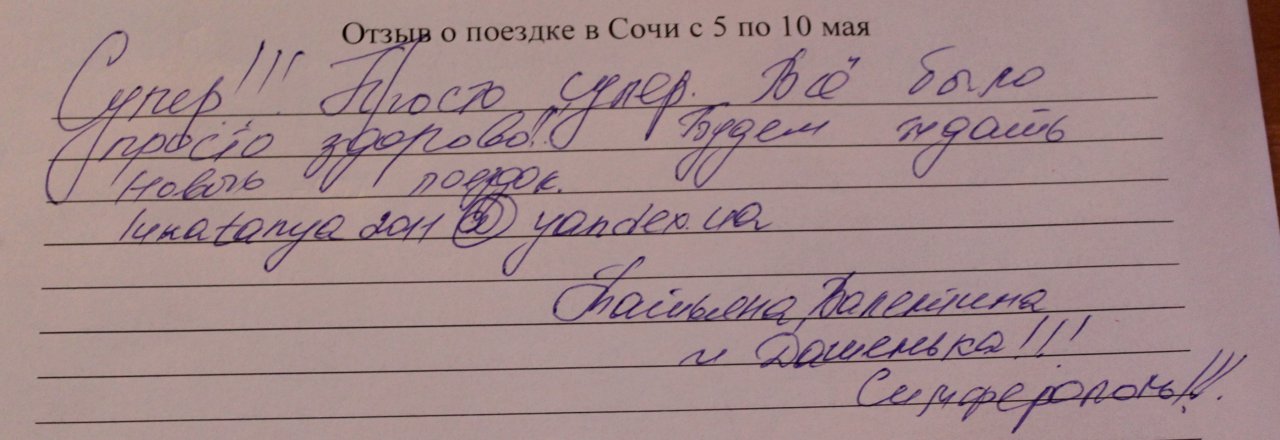 Отзыв о поездке в Сочи с 5 по 10 мая
Супер!!! Просто супер. Всё было
просто здорово!! Будем ждать
новых поездок.
lunatanya2011@yandex.ua
Татьяна, Валентина
и Дашенька!!!
Симферополь!!!